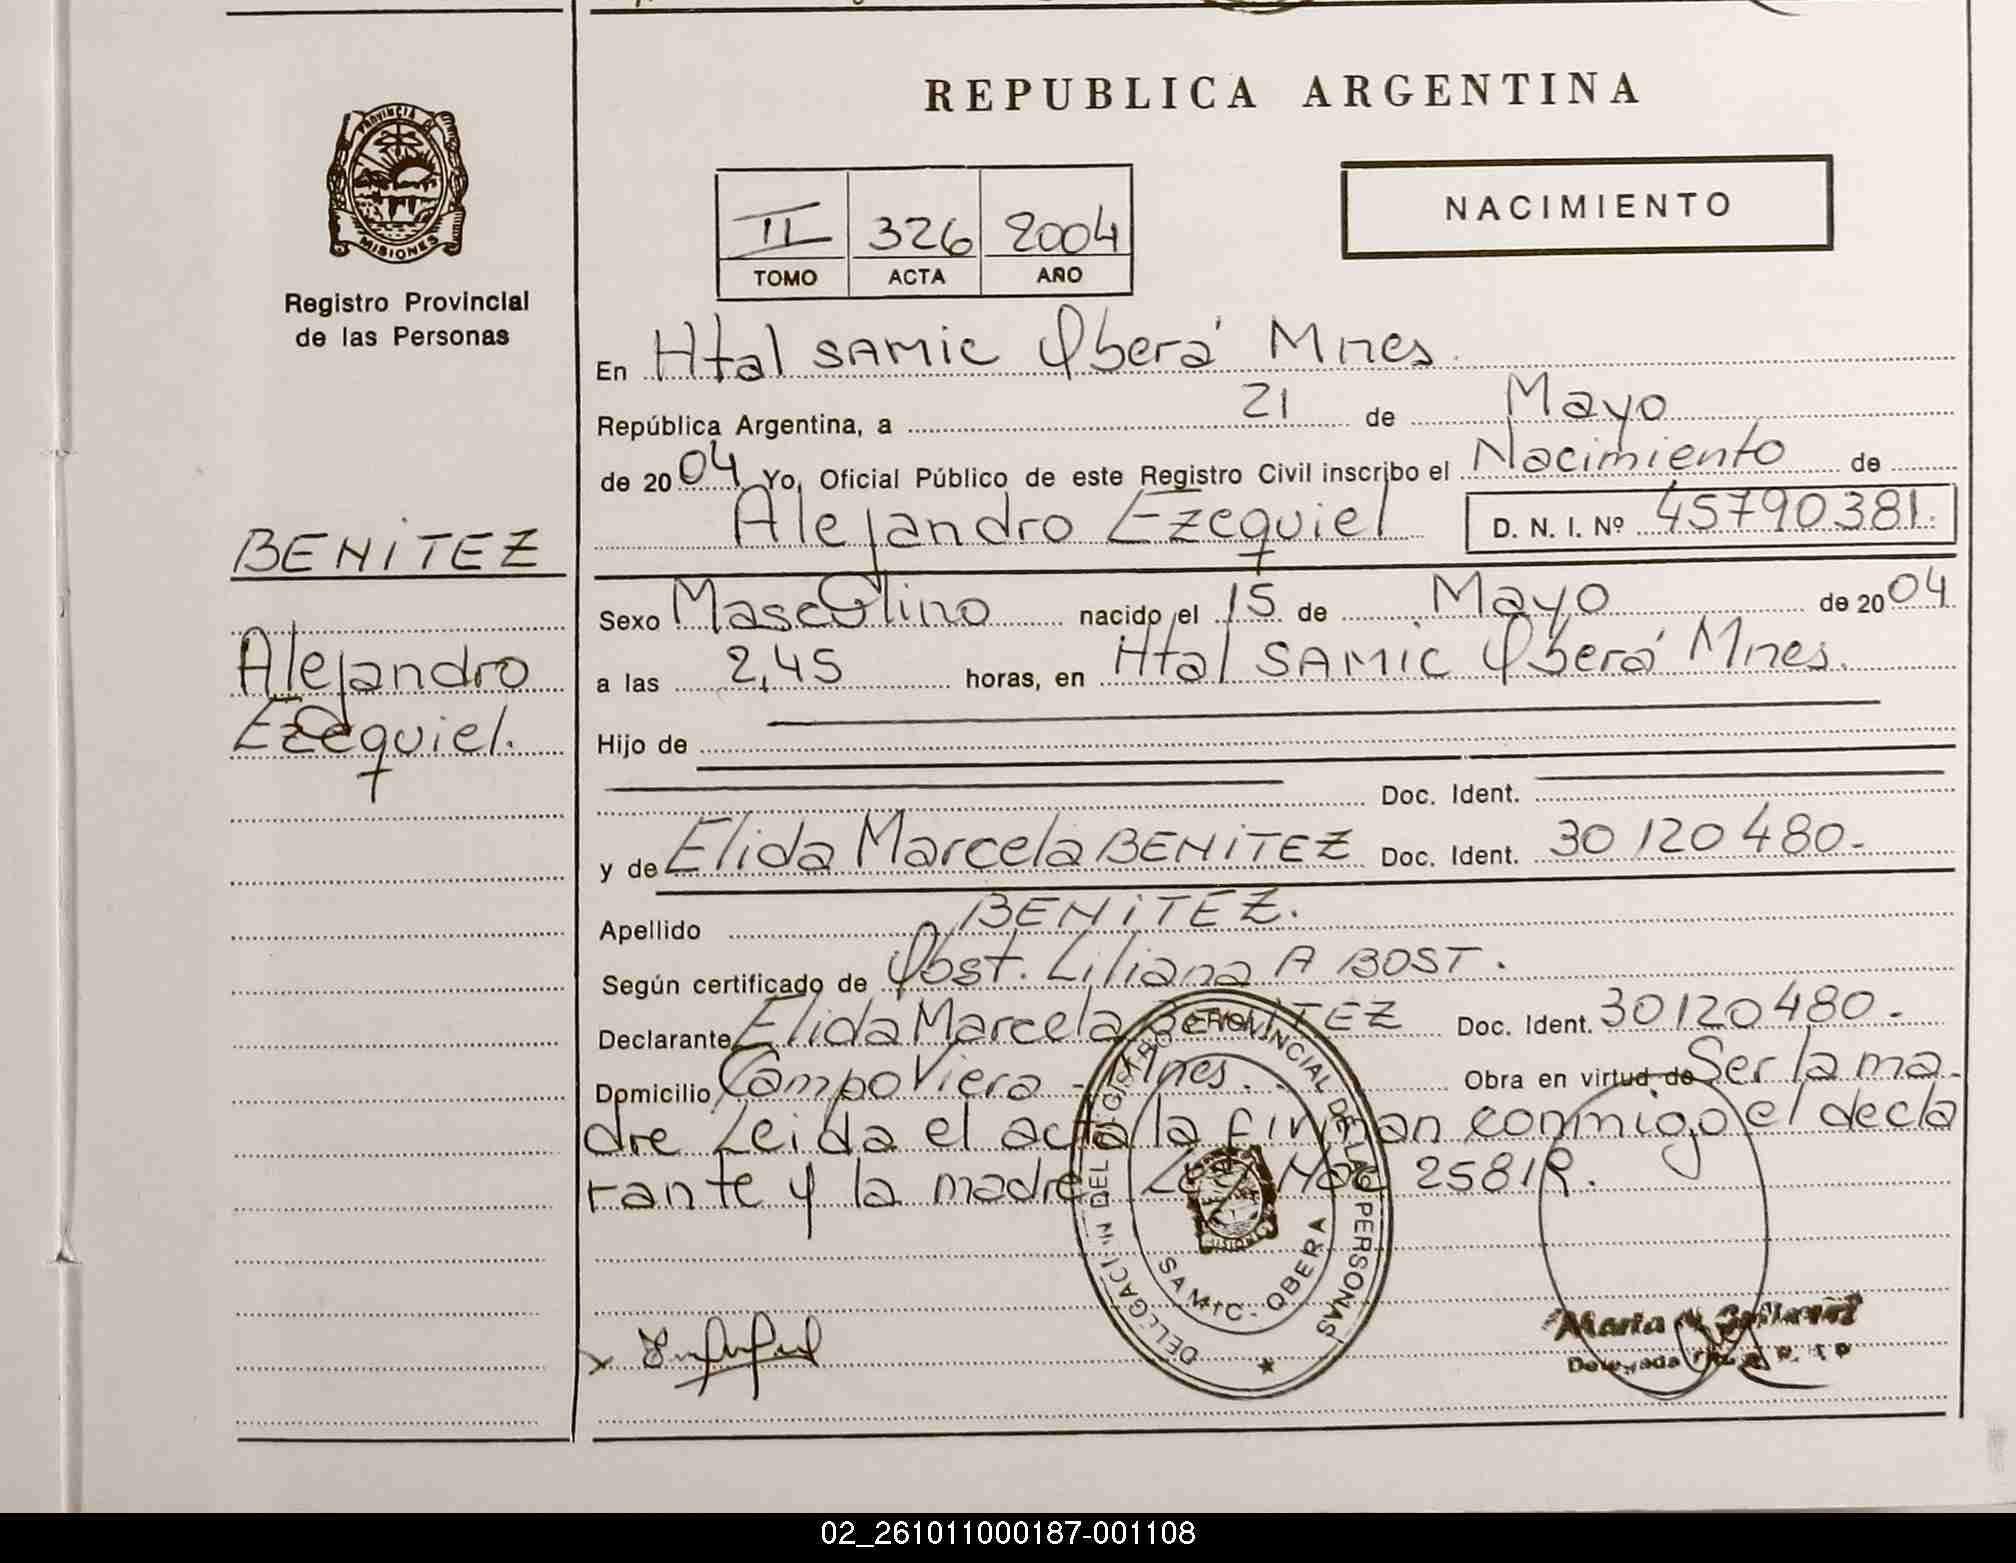 REPUBLICA ARGENTINA
PROVINCIA DE
MISIONES
Registro Provincial
de las Personas
II 326 2004
TOMO ACTA AÑO
NACIMIENTO
En Htal SAMIC Oberá Mnes.
República Argentina, a 21 de Mayo
de 2004 Yo, Oficial Público de este Registro Civil inscribo el Nacimiento de
Alejandro Ezequiel D. N. I. Nº 45790381.
BENITEZ
Alejandro
Ezequiel.
Sexo Masculino nacido el 15 de Mayo de 2004
a las 2,45 horas, en Htal SAMIC Oberá Mnes.
Hijo de
Doc. Ident.
y de Elida Marcela BENITEZ Doc. Ident. 30120480.-
Apellido BENITEZ.
Según certificado de Obst. Liliana A BOST.
Declarante Elida Marcela BENITEZ Doc. Ident. 30120480.-
Domicilio Campo Viera - Mnes. Obra en virtud de Ser la ma-
dre Leida el acta la firman conmigo el decla
rante y la madre Ley Nac 25819.
DELEGACION DEL REGISTRO PROVINCIAL DE LAS PERSONAS
SAMIC - OBERA
Maria
Delegada
02_261011000187-001108